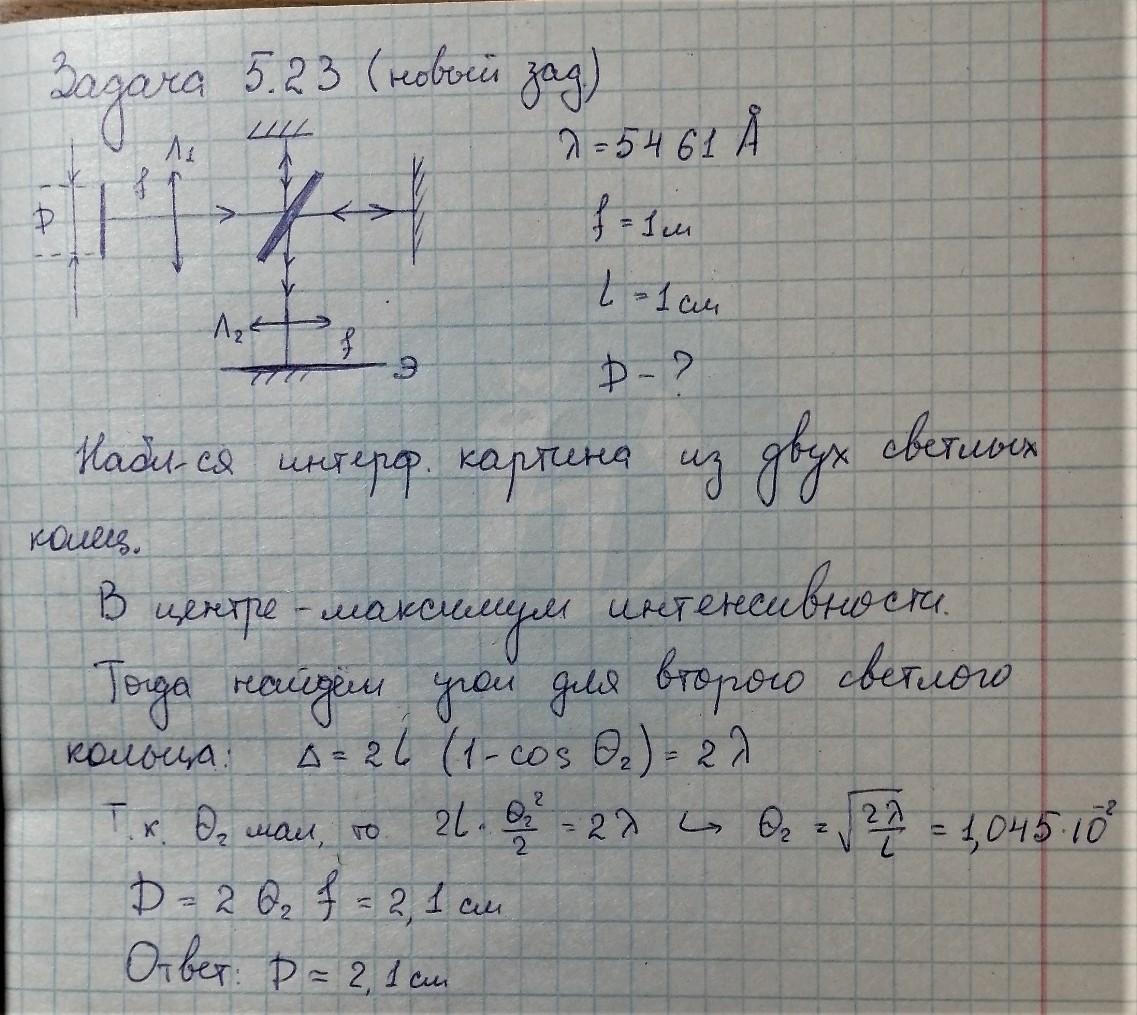 Задача 5.23 (новый зад.)
Λ1
f
D
λ = 5461 Å
f = 1м
l = 1 см
Λ2
f
Э
D - ?
Набл-ся интерф. картина из двух светлых
колец.
В центре - максимум интенсивности.
Тогда найдём угол для второго светлого
кольца: Δ = 2l (1 - cos θ₂) = 2λ
Т.к. θ₂ мал, то 2l · θ₂²/2 = 2λ ↪ θ₂ = √(2λ/l) = 1,045·10⁻²
D = 2 θ₂ f = 2,1 см
Ответ: D = 2,1 см